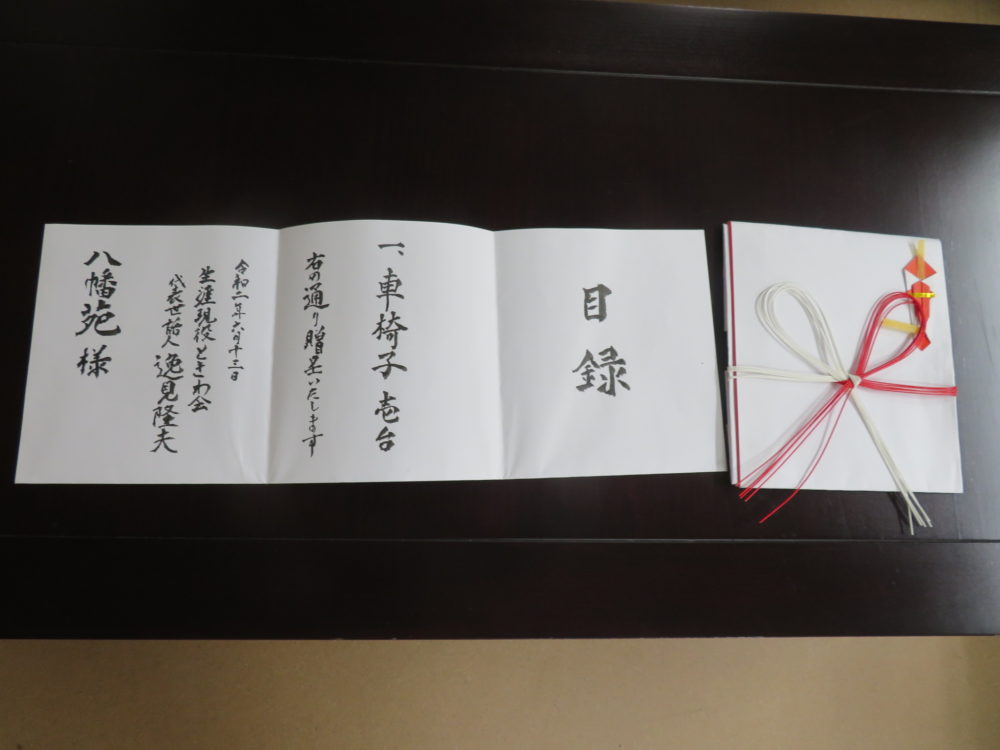 目録
一、車椅子 壱台
右の通り贈呈いたします
令和二年六月十三日
生涯現役ときわ会
代表世話人 逸見隆夫
八幡苑 様